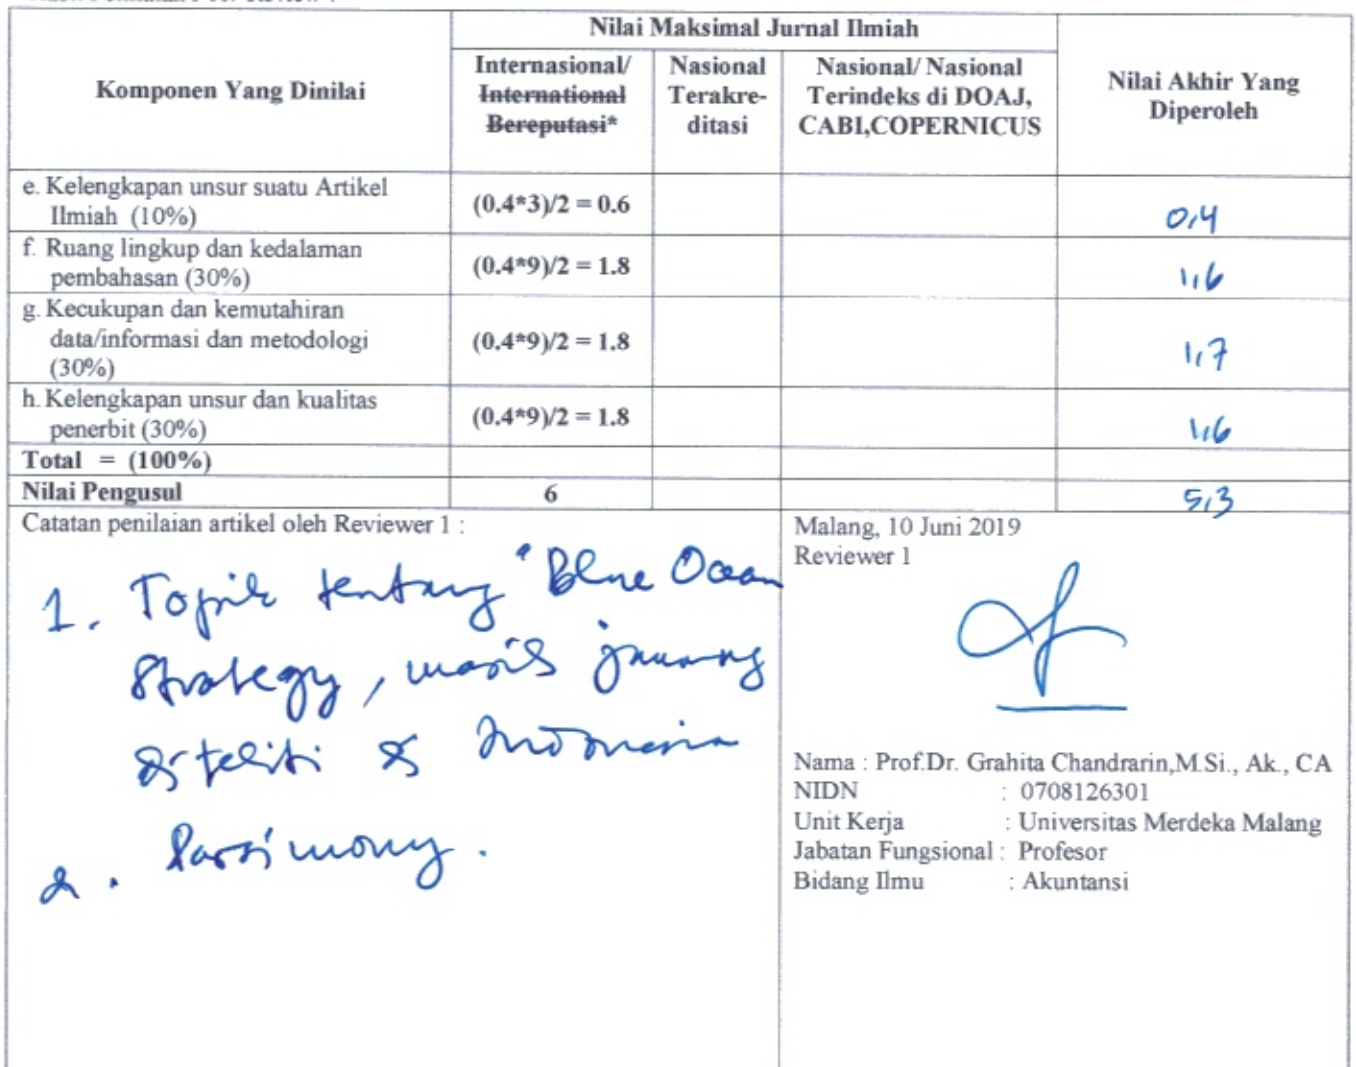 Nilai Maksimal Jurnal Ilmiah
Komponen Yang Dinilai
Internasional/
International
Bereputasi*
Nasional
Terakre-
ditasi
Nasional/ Nasional
Terindeks di DOAJ,
CABI,COPERNICUS
Nilai Akhir Yang
Diperoleh
e. Kelengkapan unsur suatu Artikel
Ilmiah (10%)
(0.4*3)/2 = 0.6
0,4
f. Ruang lingkup dan kedalaman
pembahasan (30%)
(0.4*9)/2 = 1.8
1,6
g. Kecukupan dan kemutahiran
data/informasi dan metodologi
(30%)
(0.4*9)/2 = 1.8
1,7
h. Kelengkapan unsur dan kualitas
penerbit (30%)
(0.4*9)/2 = 1.8
1,6
Total = (100%)
Nilai Pengusul 6 5,3
Catatan penilaian artikel oleh Reviewer 1 :
1. Topik tentang "Blue Ocean
Strategy, masih jarang
diteliti di Indonesia
2. Parsimony.
Malang, 10 Juni 2019
Reviewer 1
Nama : Prof.Dr. Grahita Chandrarin,M.Si., Ak., CA
NIDN : 0708126301
Unit Kerja : Universitas Merdeka Malang
Jabatan Fungsional : Profesor
Bidang Ilmu : Akuntansi